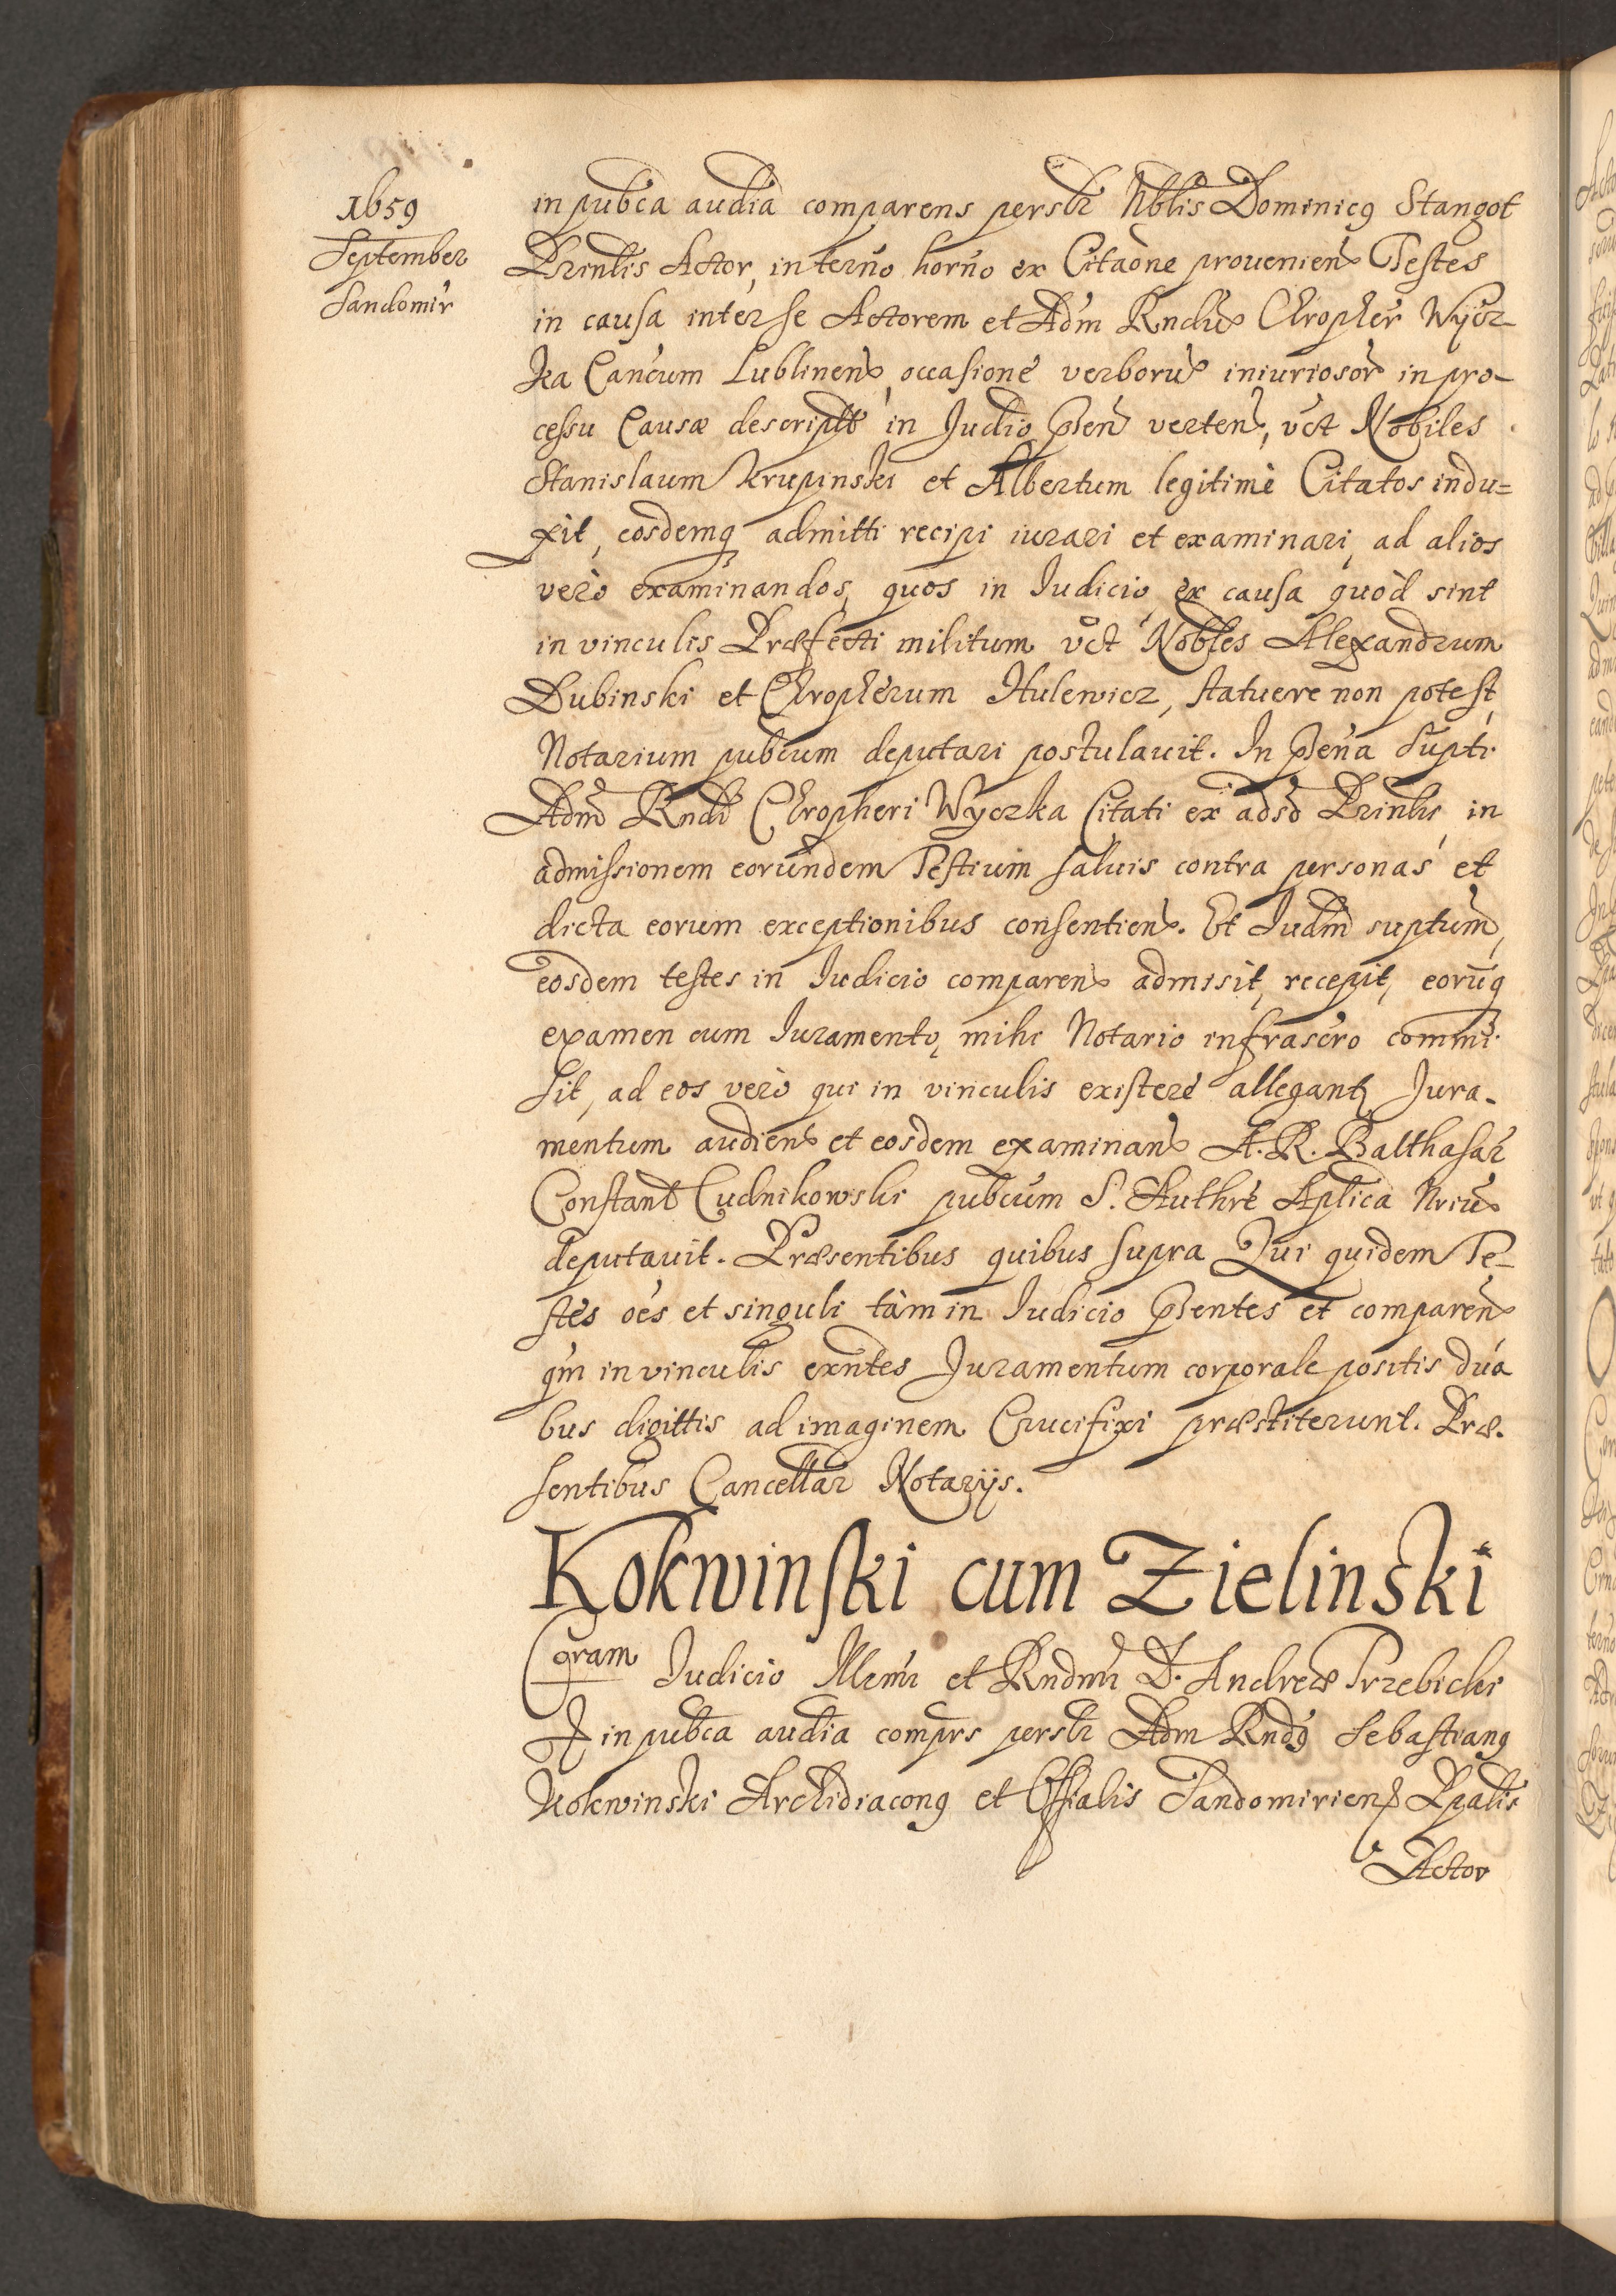 1659
September
Sandomir
in pubca audia comparens persлr Nblis Dominicq Stangot
Prinlis Actor, in terno horno ex Citaone prouenien Testes
in causa inter se Actorem et Adm Rndu Chropher Wycz-
ka Cancum Lublinen, occasione verboru iniuriosor in pro-
cessu Causæ descript in Judio pn̄ verten, vct Nobiles
Stanislaum Krupinski et Albertum legitimè Citatos indu=
xit, eosdemq admitti recipi iurari et examinari, ad alios
verò examinandos, quos in Iudicio, ex causa quòd sint
in vinculis Præfecti militum vct Nobles Alexandrum
Dubinski et Chropherum Hulewicz, statuere non potest,
Notarium pubcum deputari postulauit. In pn̄a supti
Adm Rndi Chropheri Wyczka Citati ex adso Prinlis, in
admissionem eorundem Testium saluis contra personas et
dicta eorum exceptionibus consentien. Et Iudm suptum,
eosdem testes in Iudicio comparen admisit, recepit, eorūq
examen cum Iuramento, mihi Notario infrascro commi-
sit, ad eos verò qui in vinculis existere allegant Jura-
mentum audien et eosdem examinan A. R. Balthasar
Constant Cudnikowski pubcum S. Authre Aplica Nriu
deputauit. Præsentibus quibus supra Qui quidem Te-
stes oes et singuli tàm in Iudicio pn̄tes et comparen
qm in vinculis exntes Juramentum corporale positis dua
bus digittis ad imaginem Crucifixi præstiterunt. Præ-
sentibus Cancellar Notarijs.
Kokwinski cum Zielinski
Cgram Judicio Illrmi et Rndmi D. Andreæ Trzebicki
E in pubca audia comprs persлr Adm Rndq Sebastianq
Kokwinski Archidiaconq et Offialis Sandomirien Ppalis
Actor